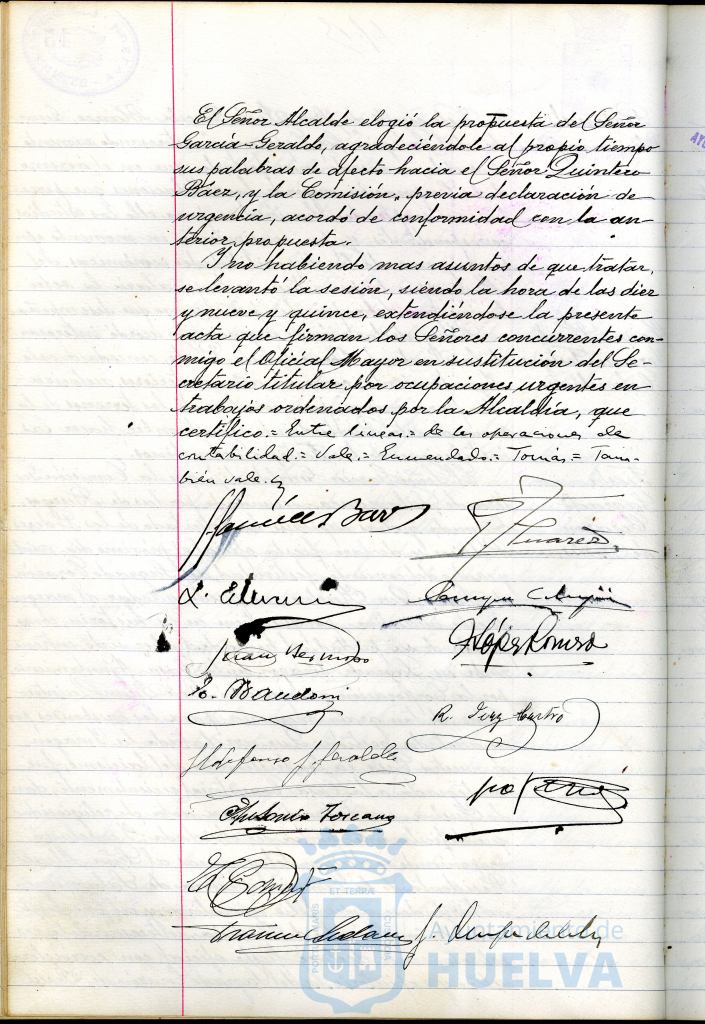 El Señor Alcalde elogió la propuesta del Señor
García-Geraldo, agradeciéndole al propio tiempo
sus palabras de afecto hacia el Señor Quintero
Báez, y la Comisión, previa declaración de
urgencia, acordó de conformidad con la an-
terior propuesta.
Y no habiendo mas asuntos de que tratar,
se levantó la sesión, siendo la hora de las diez
y nueve y quince, extendiéndose la presente
acta que firman los Señores concurrentes con-
migo el Oficial Mayor en sustitución del Se-
cretario titular por ocupaciones urgentes en
trabajos ordenados por la Alcaldía, que
certifico.= Entre lineas.= de las operaciones de
contabilidad.= Vale.= Enmendado.= Tomás = Tam-
bién vale.
Suarez
Juan Bermoso
López Romero
R. Castro
Ildefonso G. Geraldo
Antonio Toscano
ET TERRA
Ayuntamiento de
HUELVA